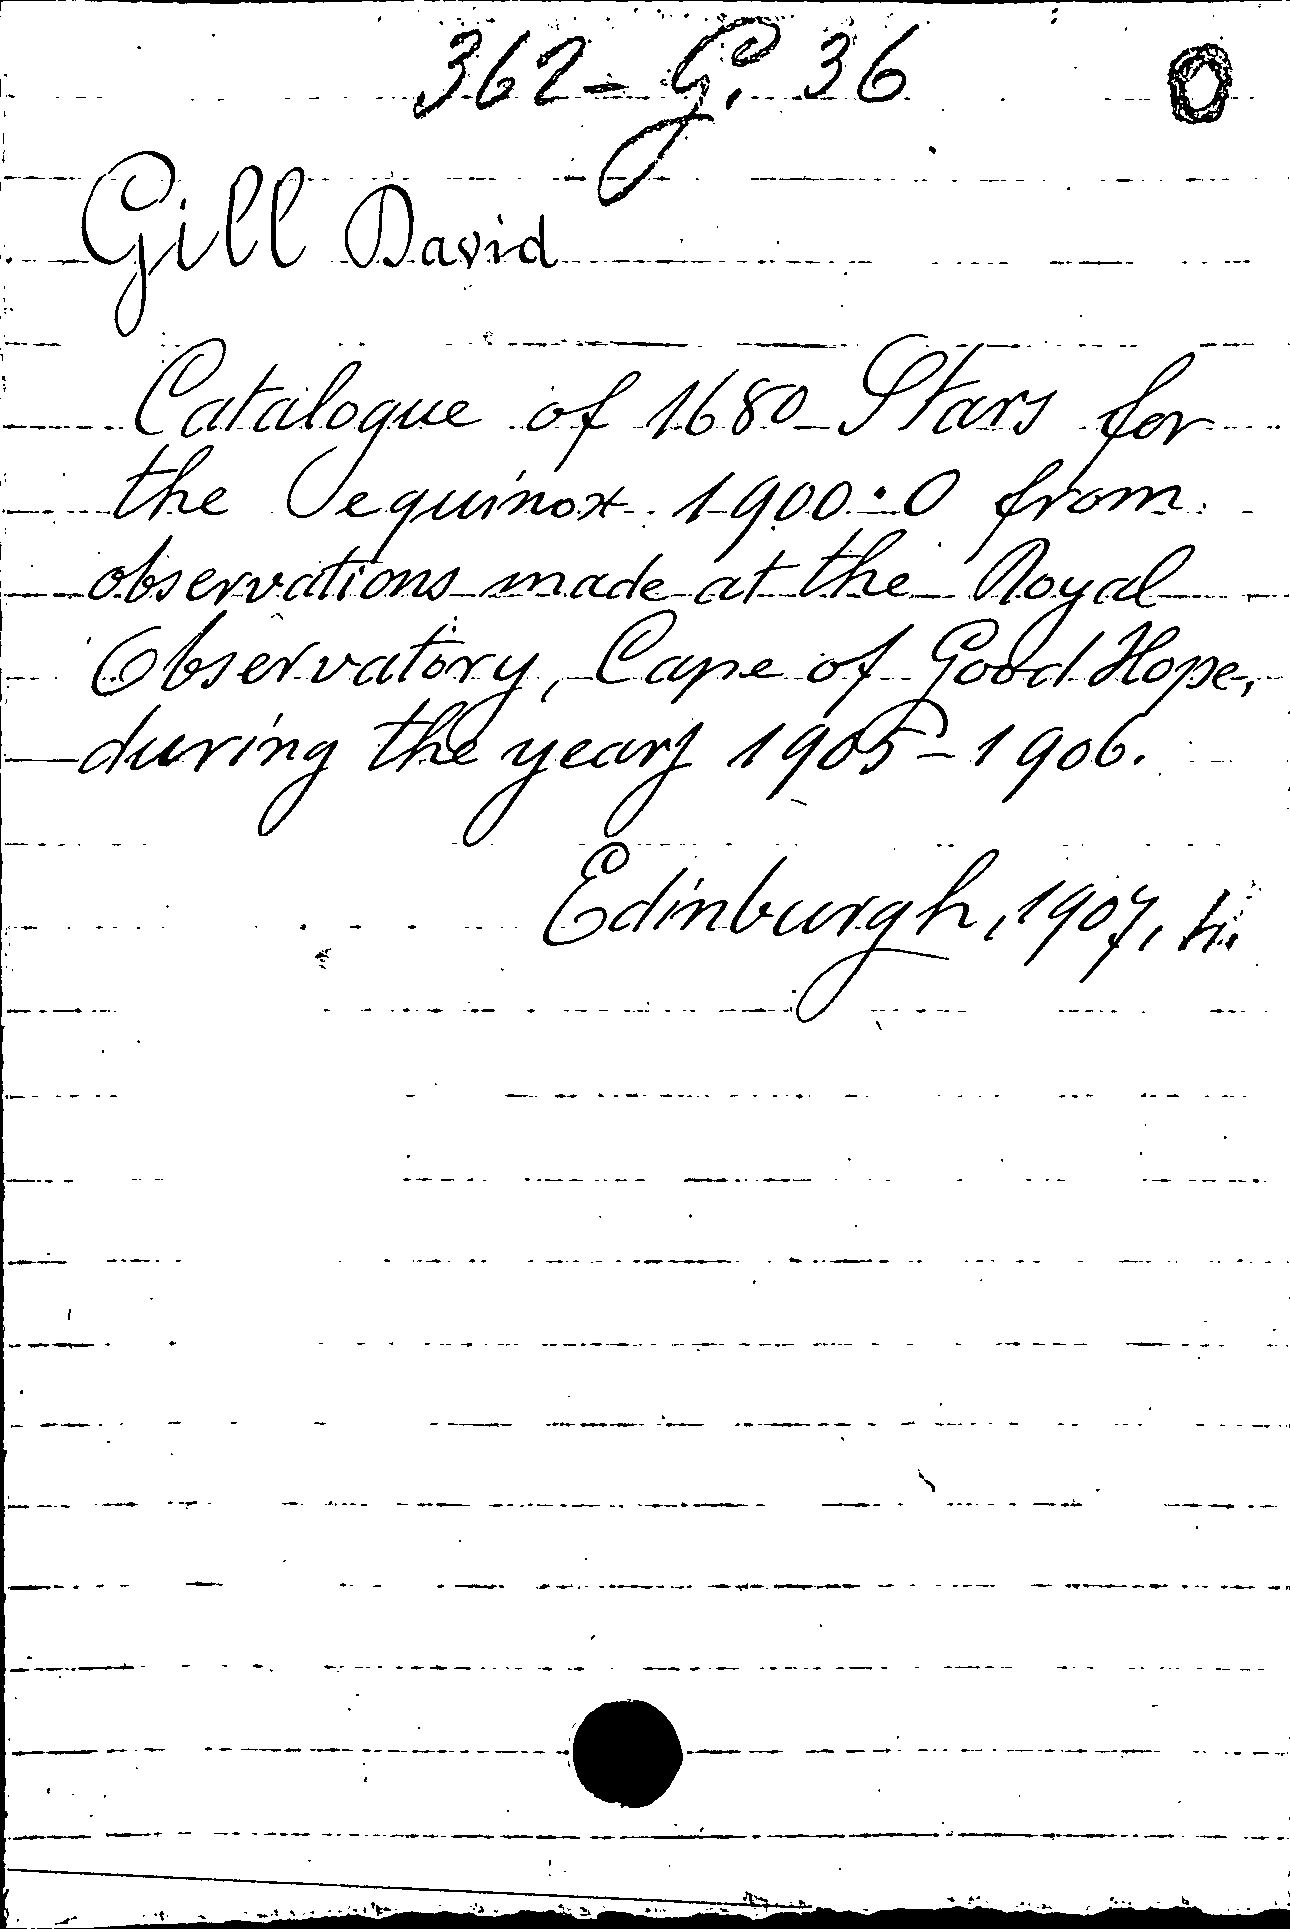 362-G. 36 O
Gill David
Catalogue of 1680 Stars for
the equinox 1900·0 from
observations made at the Royal
Observatory, Cape of Good Hope,
during the years 1905-1906.
Edinburgh, 1907, 4: